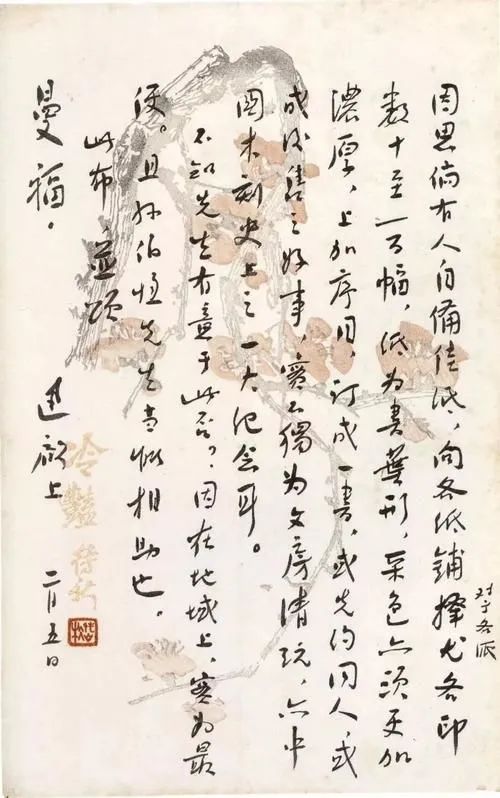 对于各派
因思倘有人自備佳纸，向各纸鋪擇尤各印
数十至一百幅，纸为書葉形，采色亦须更加
濃厚，上加序目，訂成一書，或先约同人，或
成後售之好事，實不獨为文房清玩，亦中
國木刻史上之一大纪念耳。
不知先生有意于此否？因在地域上，實为最
便。且孫伯恒先生当能相助也。
此布，並颂
曼福。
迅 頓上 二月五日
冷豔
待秋